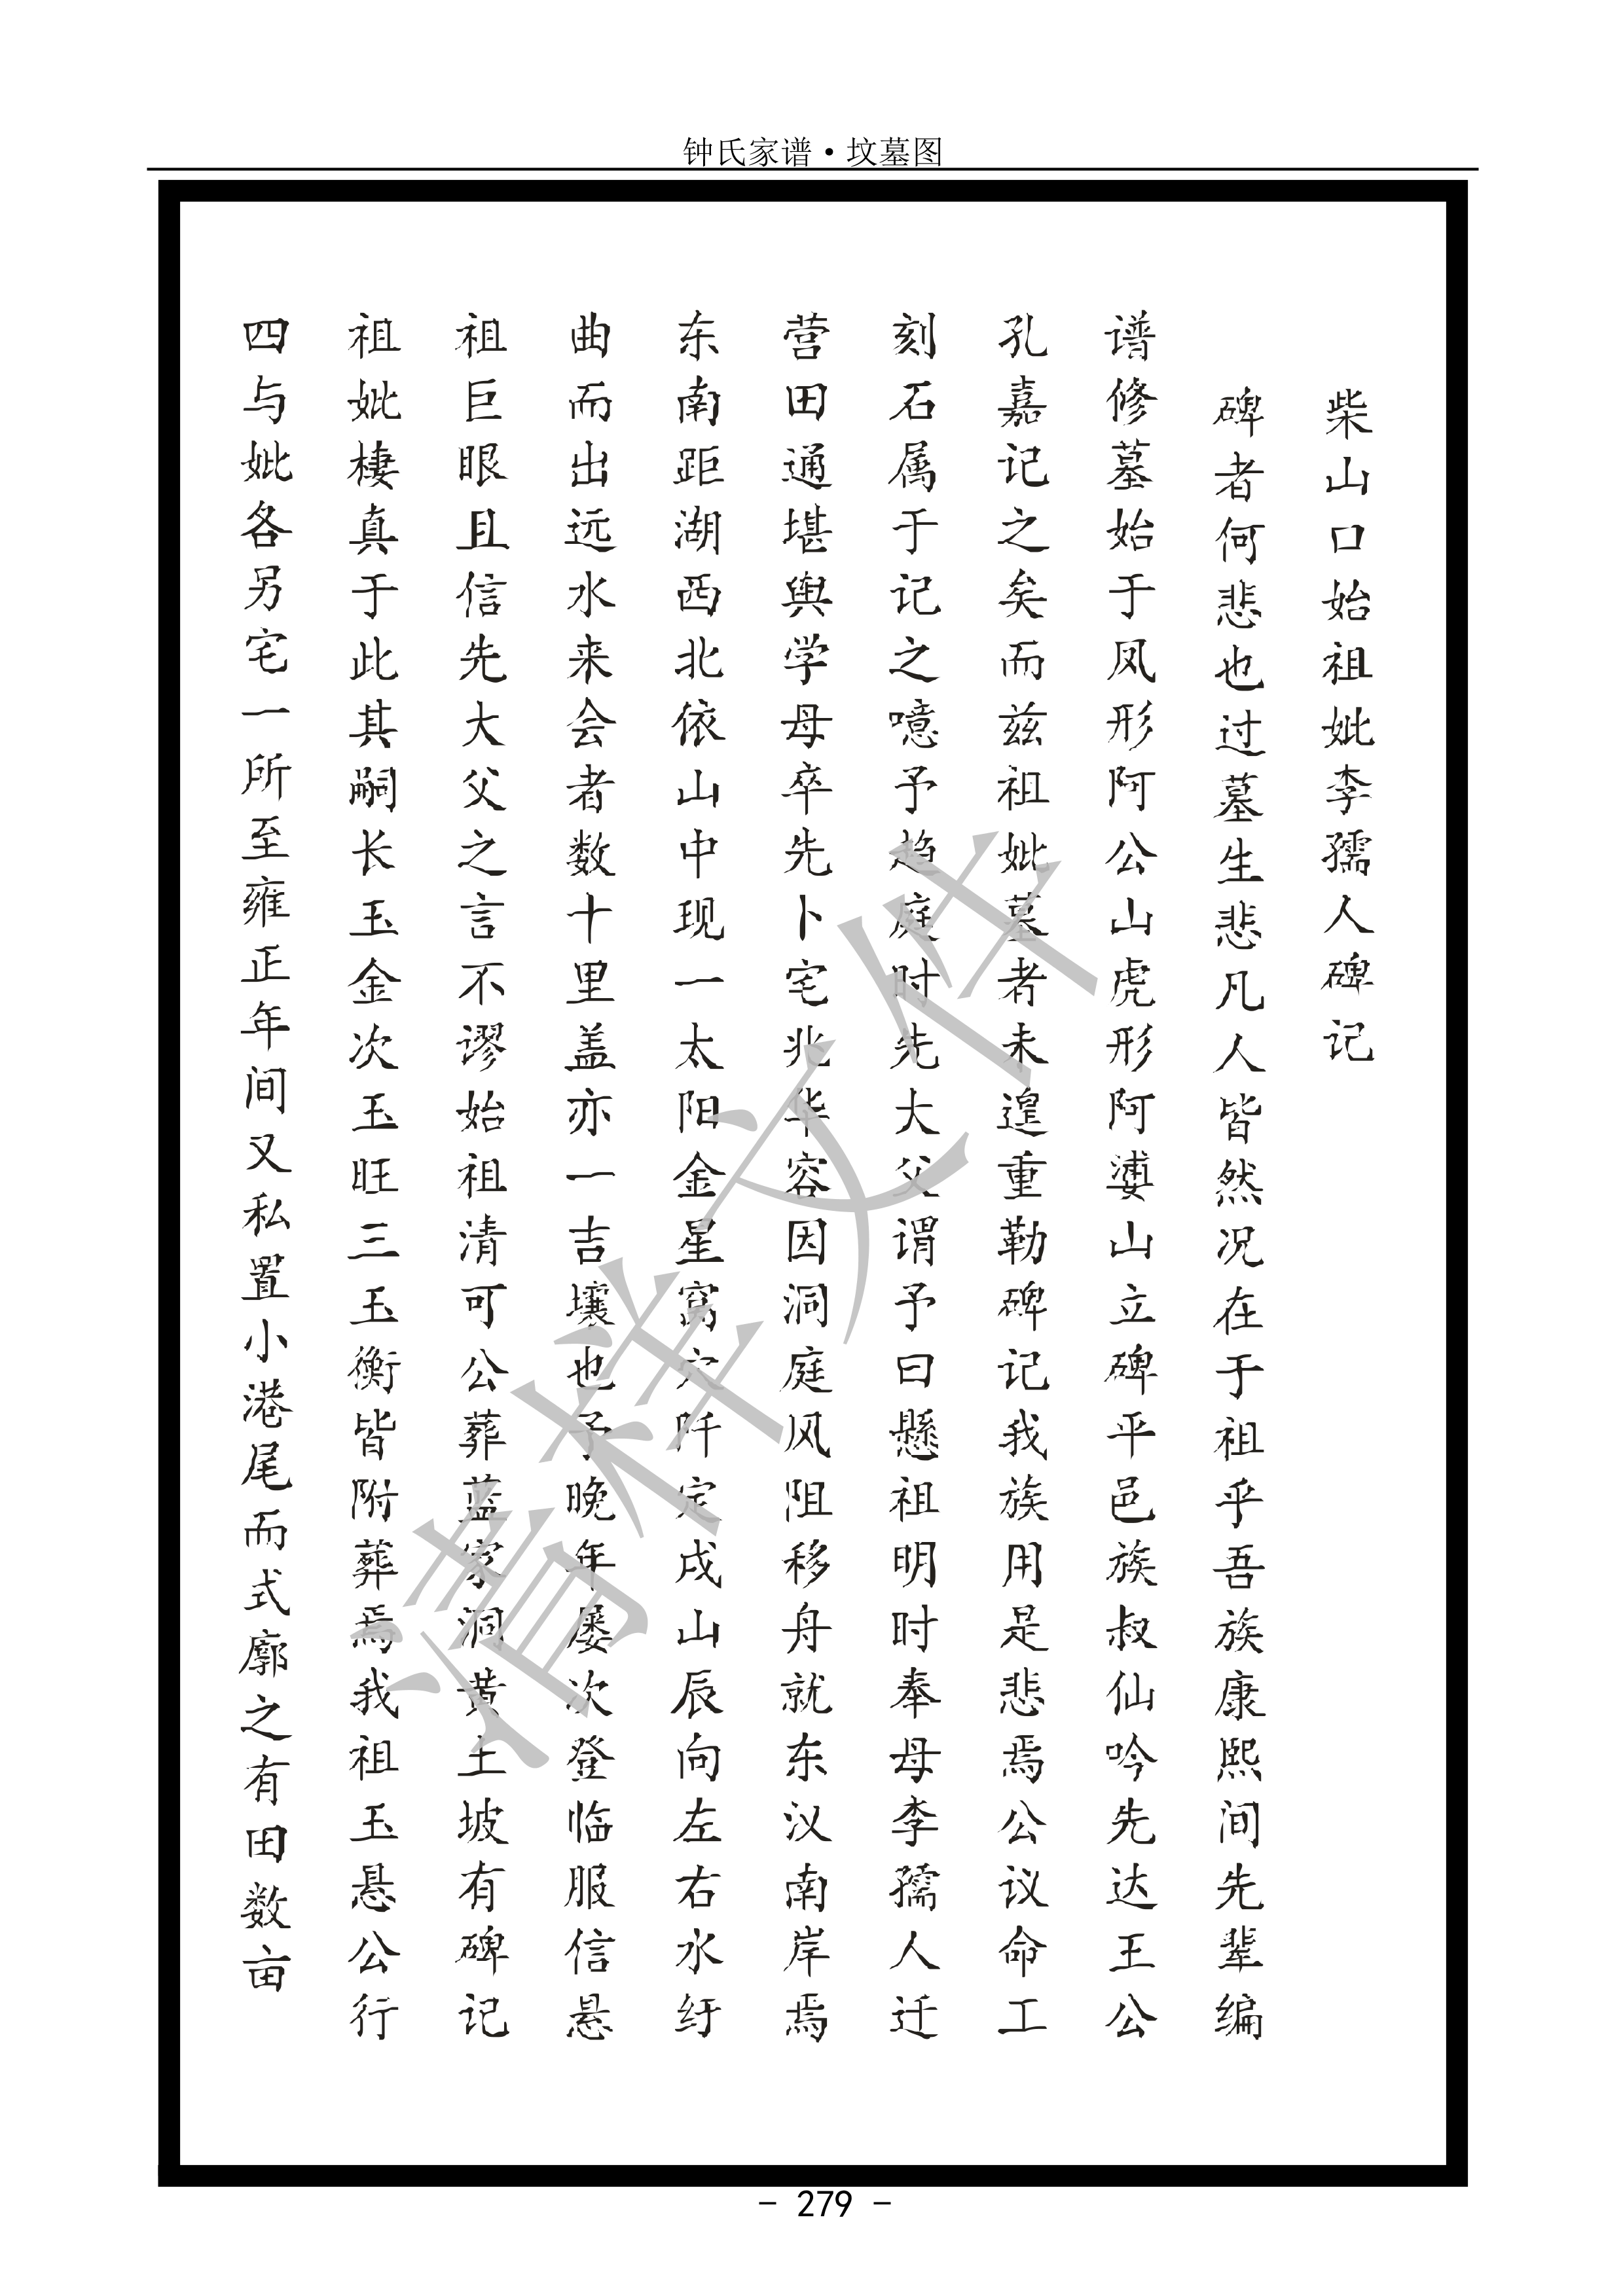 钟氏家谱·坟墓图
柴山口始祖妣李孺人碑记
碑者何悲也过墓生悲凡人皆然况在于祖乎吾族康熙间先辈编
谱修墓始于凤形阿公山虎形阿婆山立碑平邑族叔仙吟先达王公
孔嘉记之矣而兹祖妣墓者未遑重勒碑记我族用是悲焉公议命工
刻石属于记之噫予趋庭时先大父谓予曰懸祖明时奉母李孺人迁
营田通堪舆学母卒先卜宅兆华容因洞庭风阻移舟就东汊南岸焉
东南距湖西北依山中现一太阳金星窝穴阡定戌山辰向左右水纡
曲而出远水来会者数十里盖亦一吉壤也予晚年屡次登临服信悬
祖巨眼且信先大父之言不谬始祖清可公葬蓝家洞黄土坡有碑记
祖妣棲真于此其嗣长玉金次玉旺三玉衡皆附葬焉我祖玉悬公行
四与妣各另宅一所至雍正年间又私置小港尾而式廓之有田数亩
清样文件
- 279 -